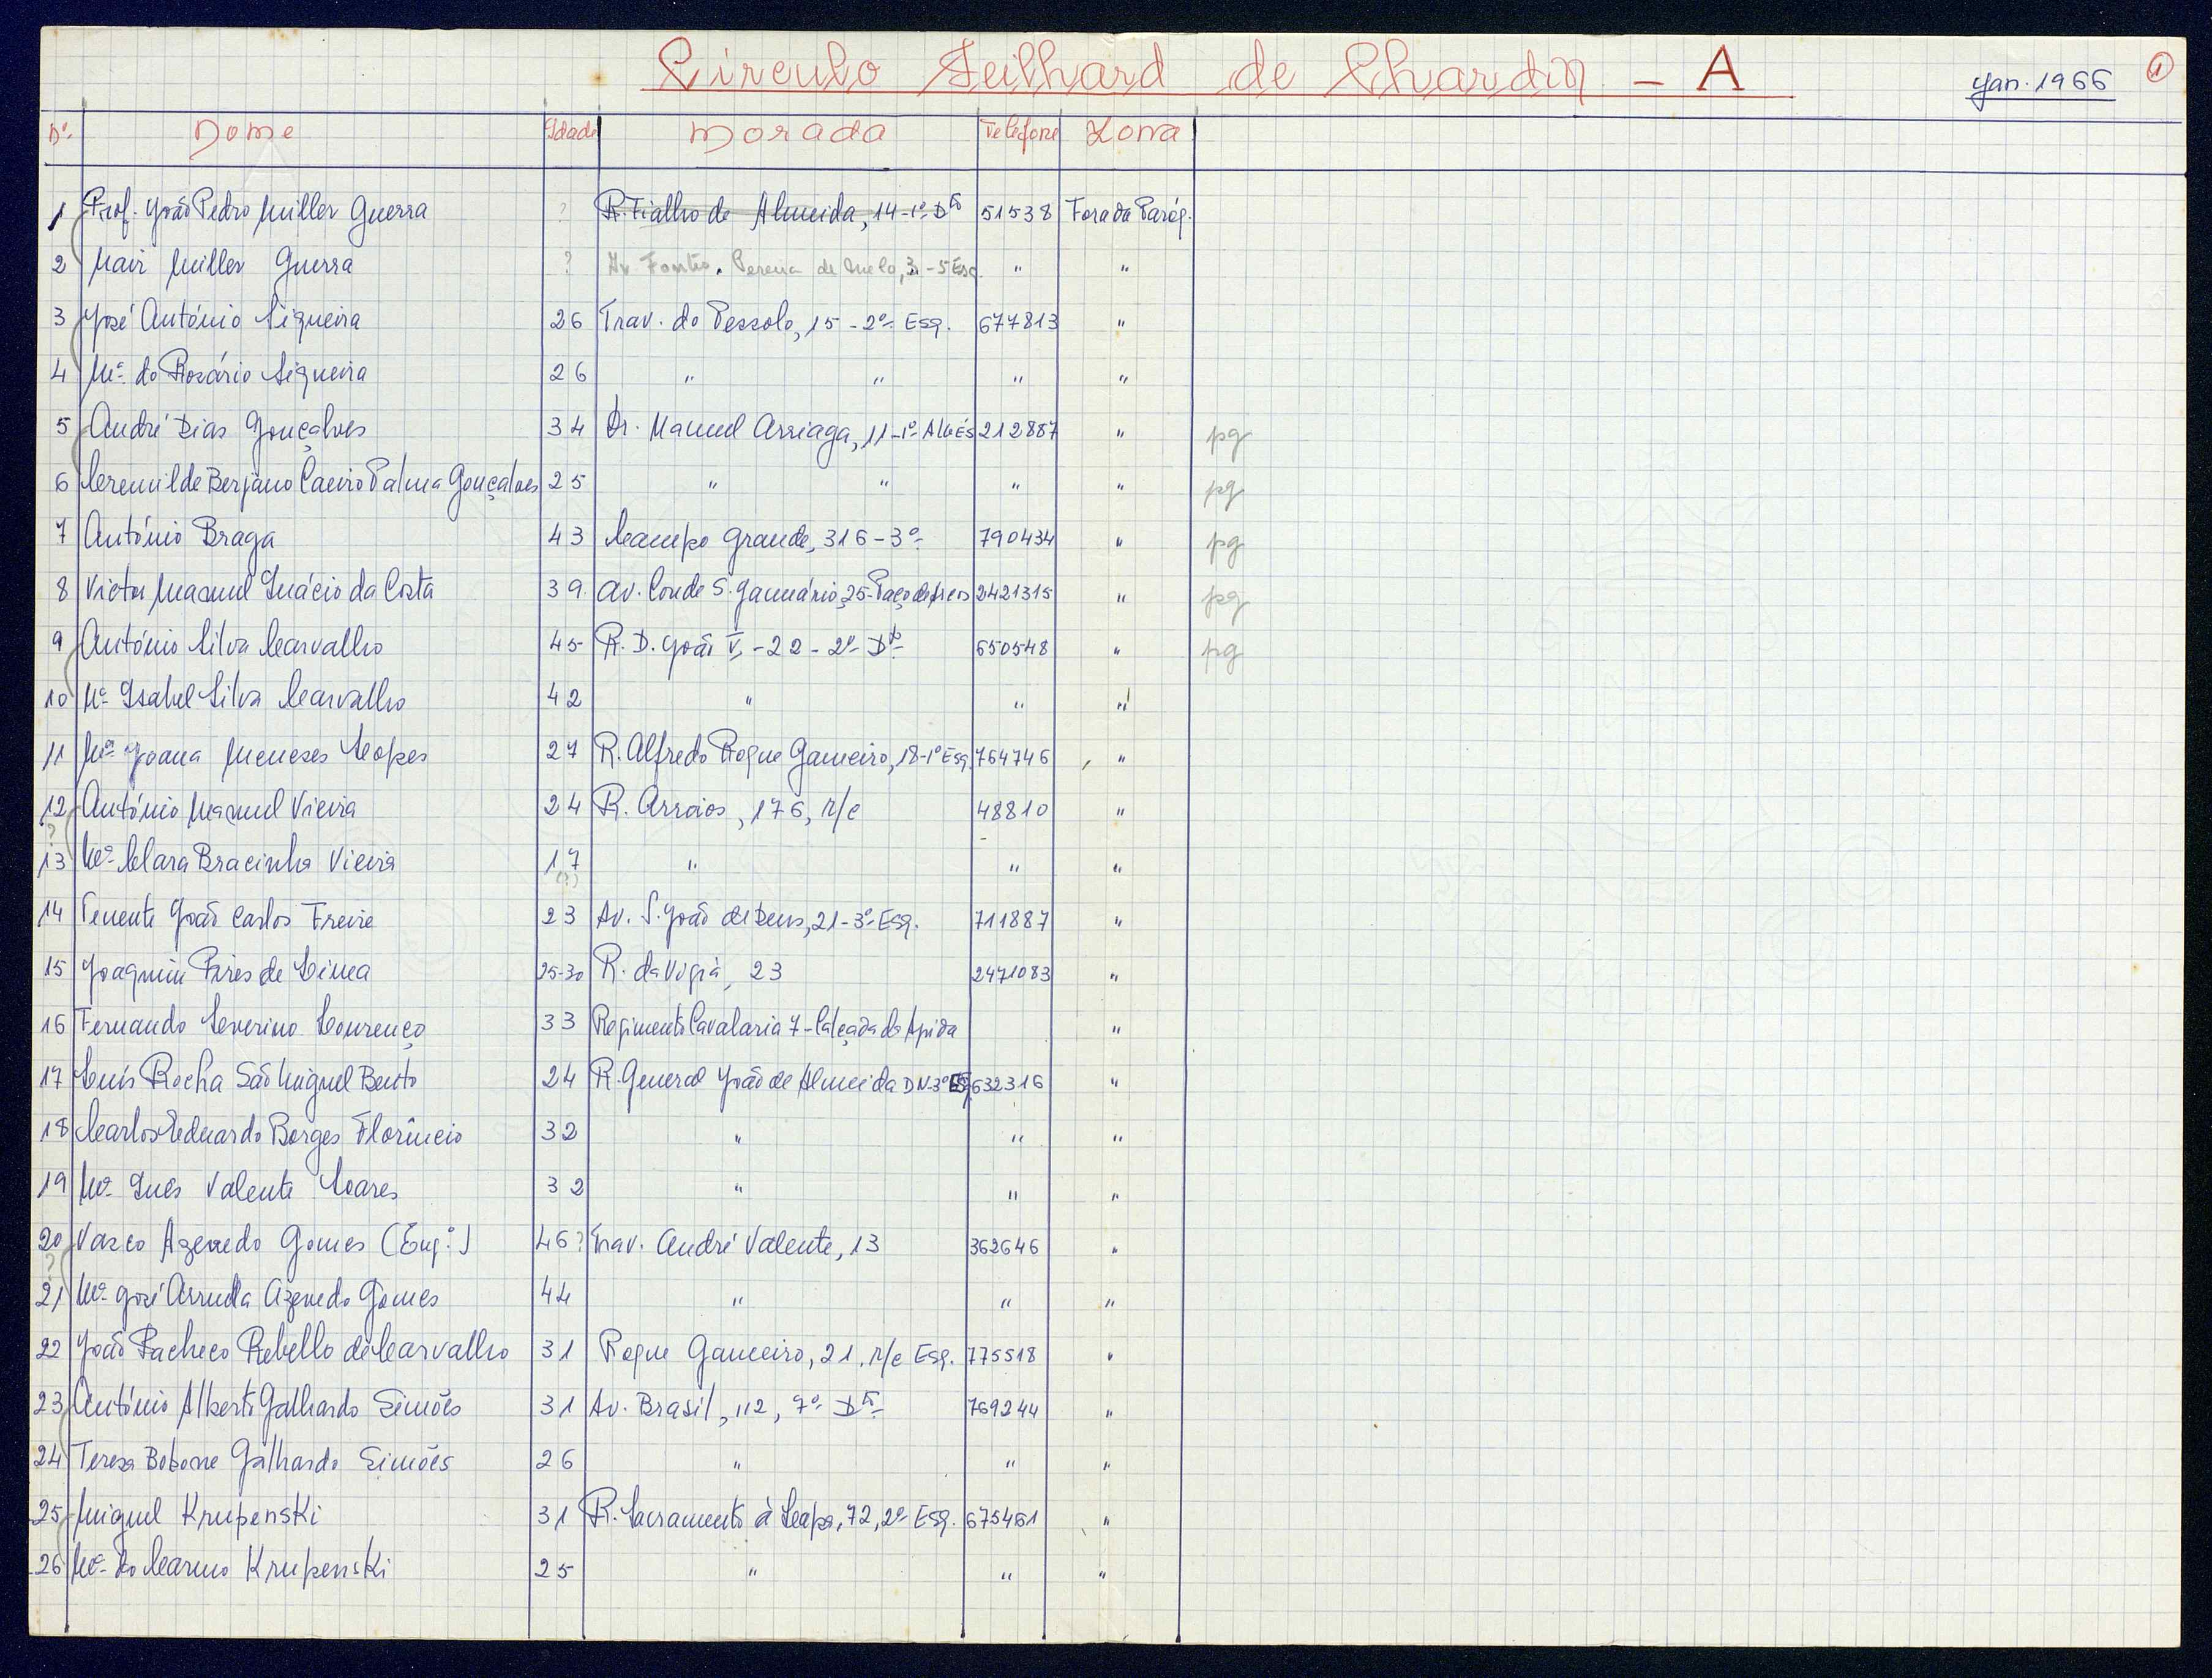 Circulo Teilhard de Chardin - A
Jan. 1966
1
Nº. Nome Idade Morada Telefone Zona
1 Prof. João Pedro Miller Guerra ? R. Fialho de Almeida, 14-1º Dtº 51538 Fora da Paróq.
2 Mair Miller Guerra ? Av. Fontes Pereira de Melo, 3 - 5 Esq. " "
3 José António Siqueira 26 Trav. do Pessolo, 15 - 2º Esq. 677813 "
4 Mª do Rosário Siqueira 26 " " " "
5 André Dias Gonçalves 34 Dr. Manuel Arriaga, 11-1º Algés 212887 " pg
6 Cremilde Berjano Caeiro Palma Gonçalves 25 " " " " pg
7 António Braga 43 Campo Grande, 316 - 3º 790434 " pg
8 Victor Manuel Inácio da Costa 39 Av. Conde S. Januário, 25-Paço de Arcos 2421315 " pg
9 António Silva Carvalho 45 R. D. João V, - 22 - 2º Dtº 650548 " pg
10 Mª Isabel Silva Carvalho 42 " " "
11 Mª Joana Meneses Lopes 27 R. Alfredo Roque Gameiro, 18-1º Esq. 764746 "
12 António Manuel Vieira 24 R. Arroios, 176, r/c 48810 "
?
13 Mª Clara Bracinha Vieira 17 " " "
(?)
14 Tenente João Carlos Freire 23 Av. S. João de Deus, 21-3º Esq. 711887 "
15 Joaquim Pires de Lima 25-30 R. da Vigia, 23 2471083 "
16 Fernando Severino Lourenço 33 Regimento Cavalaria 7 - Calçada da Ajuda "
17 Luís Rocha São Miguel Bento 24 R. General João de Almeida DN-3º Esq. 632316 "
18 Carlos Eduardo Borges Florêncio 32 " " "
19 Mª Inês Valente Soares 32 " " "
20 Vasco Azevedo Gomes (Eng.º) 46? Trav. André Valente, 13 362646 "
?
21 Mª José Arruda Azevedo Gomes 44 " " "
22 João Pacheco Rebello de Carvalho 31 Roque Gameiro, 21, r/c Esq. 775518 "
23 António Alberto Galhardo Simões 31 Av. Brasil, 112, 7º Dtº 769244 "
24 Teresa Bobone Galhardo Simões 26 " " "
25 Miguel Krupenski 31 R. Sacramento à Lapa, 72, 2º Esq. 675461 "
26 Mª do Carmo Krupenski 25 " " "